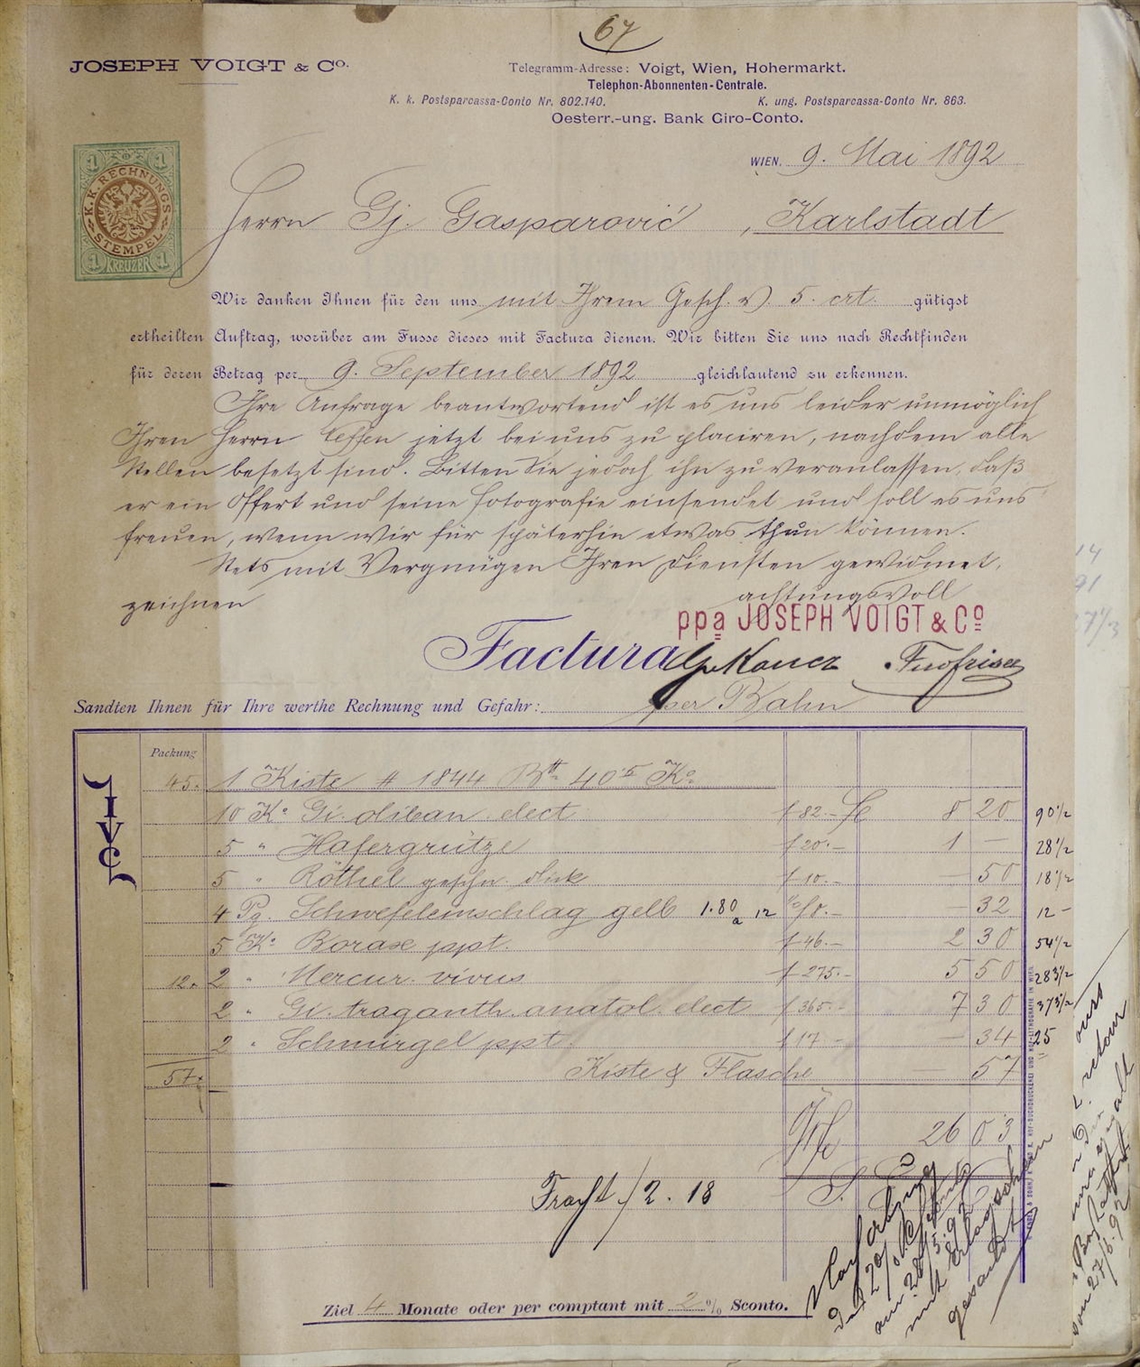 67
JOSEPH VOIGT & Co.
Telegramm-Adresse: Voigt, Wien, Hohermarkt.
Telephon-Abonnenten-Centrale.
K. k. Postsparcassa-Conto Nr. 802.140. K. ung. Postsparcassa-Conto Nr. 863.
Oesterr.-ung. Bank Giro-Conto.
WIEN, 9. Mai 1892
1 1
K.K. RECHNUNGS
STEMPEL
1 KREUZER 1
Herrn Gj. Gasparović, Karlstadt
Wir danken Ihnen für den uns mit Ihrem Gesch. v. 5. crt. gütigst
ertheilten Auftrag, worüber am Fusse dieses mit Factura dienen. Wir bitten Sie uns nach Rechtfinden
für deren Betrag per 9. September 1892 gleichlautend zu erkennen.
Ihre Anfrage beantwortend ist es uns leider unmöglich
Ihren Herrn Neffen jetzt bei uns zu placiren, nachdem alle
Stellen besetzt sind. Bitten Sie jedoch ihn zu veranlassen, daß
er ein Offert und seine Fotografie einsendet und soll es uns
freuen, wenn wir für späterhin etwas thun können.
Stets mit Vergnügen Ihren Diensten gewidmet,
zeichnen achtungsvoll
ppa JOSEPH VOIGT & Co
Factura
Sandten Ihnen für Ihre werthe Rechnung und Gefahr: per Bahn
Packung
JVC
45. 1 Kiste # 1844 Btt 40.5 Ko
10 Ko Gi. oliban. elect f 82.- % 8 20 90 1/2
5 " Hafergrütze f 20.- 1 - 28 1/2
5 " Röthel geschn. dick f 10.- - 50 18 1/2
4 Pq. Schwefeleinschlag gelb 1.80 a 12 % 8.- - 32 12 -
5 Ko Borax ppt. f 46.- 2 30 54 1/2
12. 2 " Mercur. vivus f 275.- 5 50 283 1/2
2 " Gi. traganth. anatol. elect f 365.- 7 30 373 1/2
2 " Schmirgel ppt. f 17 - - 34 25
57. Kiste & Flasche 57
26 03
Fracht / 2. 18
Ziel 4 Monate oder per comptant mit 2 % Sconto.
am 28/5.92
mit Erlagschein
gesandt
retour
vom 27/6.92